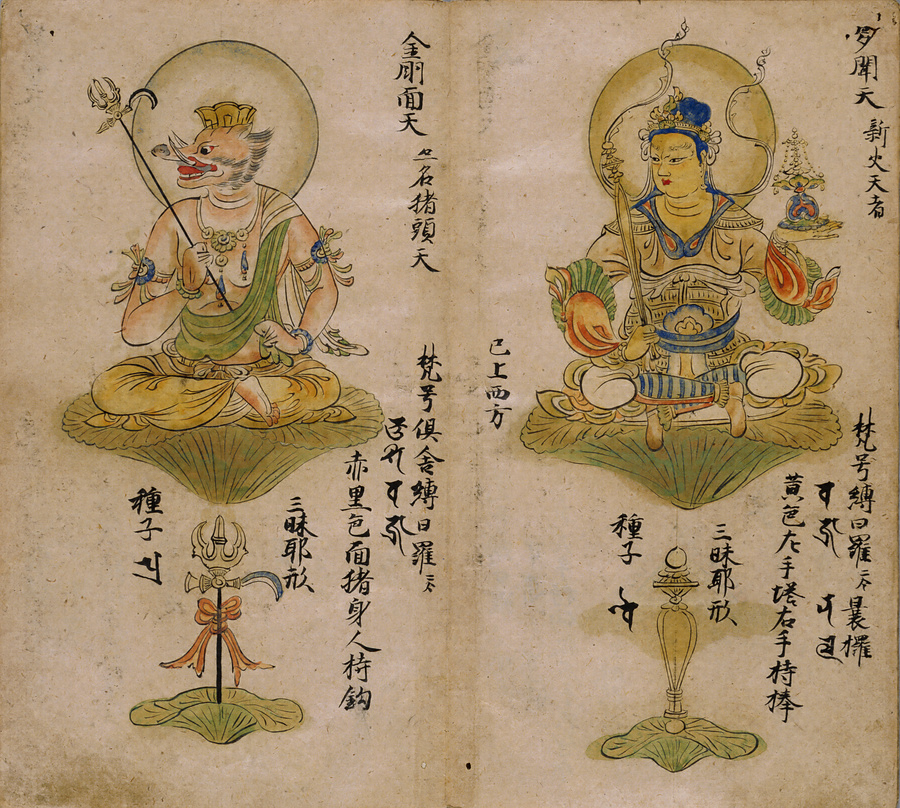 多聞天
新火天者
梵号縛曰羅二合曩欏
黄色左手塔右手持棒
三昧耶形
種子
已上西方
金剛面天
亦名猪頭天
梵号倶舎縛曰羅二合
赤黒色面猪身人持鈎
三昧耶形
種子